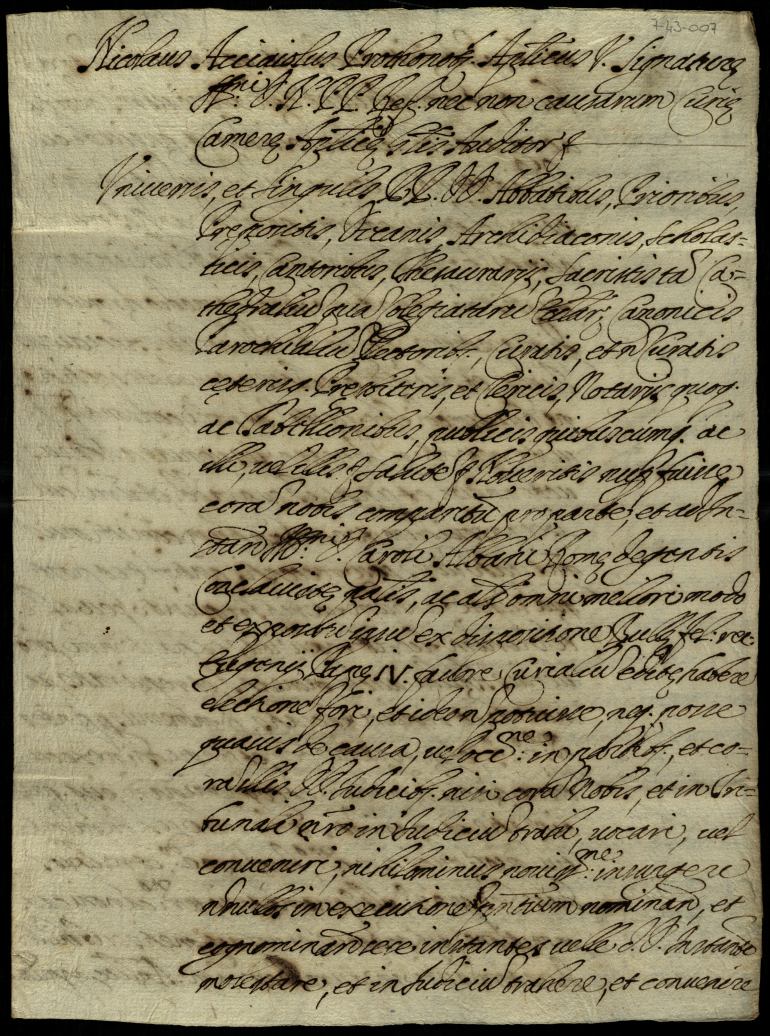 7-43-007
Nicolaus Acciaiolus Prothonots. Aplicus V. Signature
Ssmi D. N. PP. Ref. nec non causarum Curie
Camere Aplice glis Auditor
Universis, et singulis RR. DD. Abbatibus, Prioribus,
Prepositis, Decanis, Archidiaconis, Scholas-
ticis, Cantoribus, Thesaurarijs, Sacristis ta Ca-
thedraliu qua Collegiataru Canonicis
Parochialiu Rectoribs, Curatis, et n Curatis
ceterisq. Presbiteris, et Clericis, Notarijs quoq.
ac Tabellionibus, publicis quibuscumq. ac
illi, vel illis Salute Noveritis nup fuisse
cora nobis comparitu pro parte, et ad In-
stan Illmi D. Caroli Albani Rome degentis
Conclaviste qualis, ac als omni meliori modo
et expositu quod ex dispositione Bulle fel: rec:
Eugenij Pape IV. favore Curialiu edite habere
electione fori, et ideo n potuisse, neq. posse
quavis de causa, vel occne: in partibs, et co-
ra illis DD. Judicibs, nisi cora Nobis, et in Tri-
bunali nro in Judiciu trahi, vocari, vel
conveniri, nihilominus novissme: insurgere
nnullos in executione pntium nominan, et
cognominan sece iactantes velle d. D. Instante
molestare, et in Judiciu trahere, et convenire